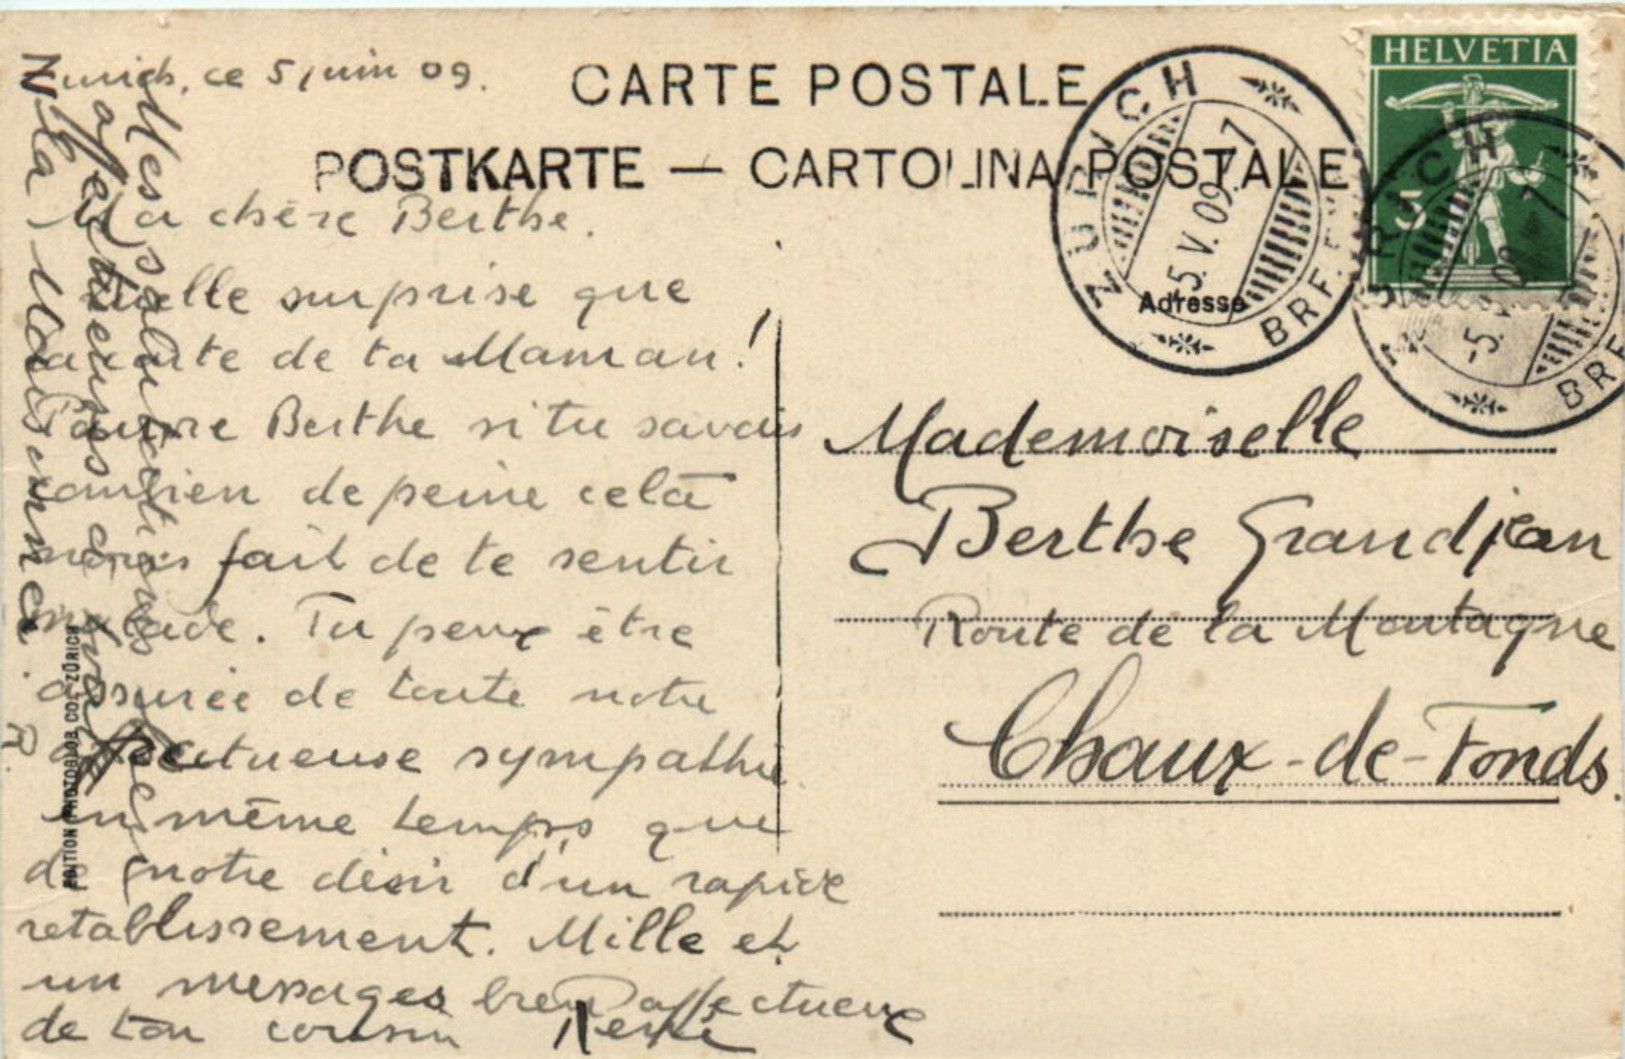 CARTE POSTALE
POSTKARTE — CARTOLINA POSTALE
HELVETIA
5
ZÜRICH
-5.V.09. 7
BRF.
ZÜRICH
-5.V.09. 7
BRF.
Adresse
Zurich, ce 5 juin 09.
Ma chère Berthe.
Quelle surprise que
la carte de ta Maman!
Pauvre Berthe si tu savais
combien de peine celà
nous fait de te sentir
malade. Tu peux être
assurée de toute notre
affectueuse sympathie
en même temps que
de notre désir d'un rapide
retablissement. Mille et
un messages bien affectueux
de ton cousin René
Mademoiselle
Berthe Grandjean
Route de la Montagne
Chaux-de-Fonds.
salutations
affectueuses
à la
EDITION PHOTOGLOB CO., ZÜRICH
R.